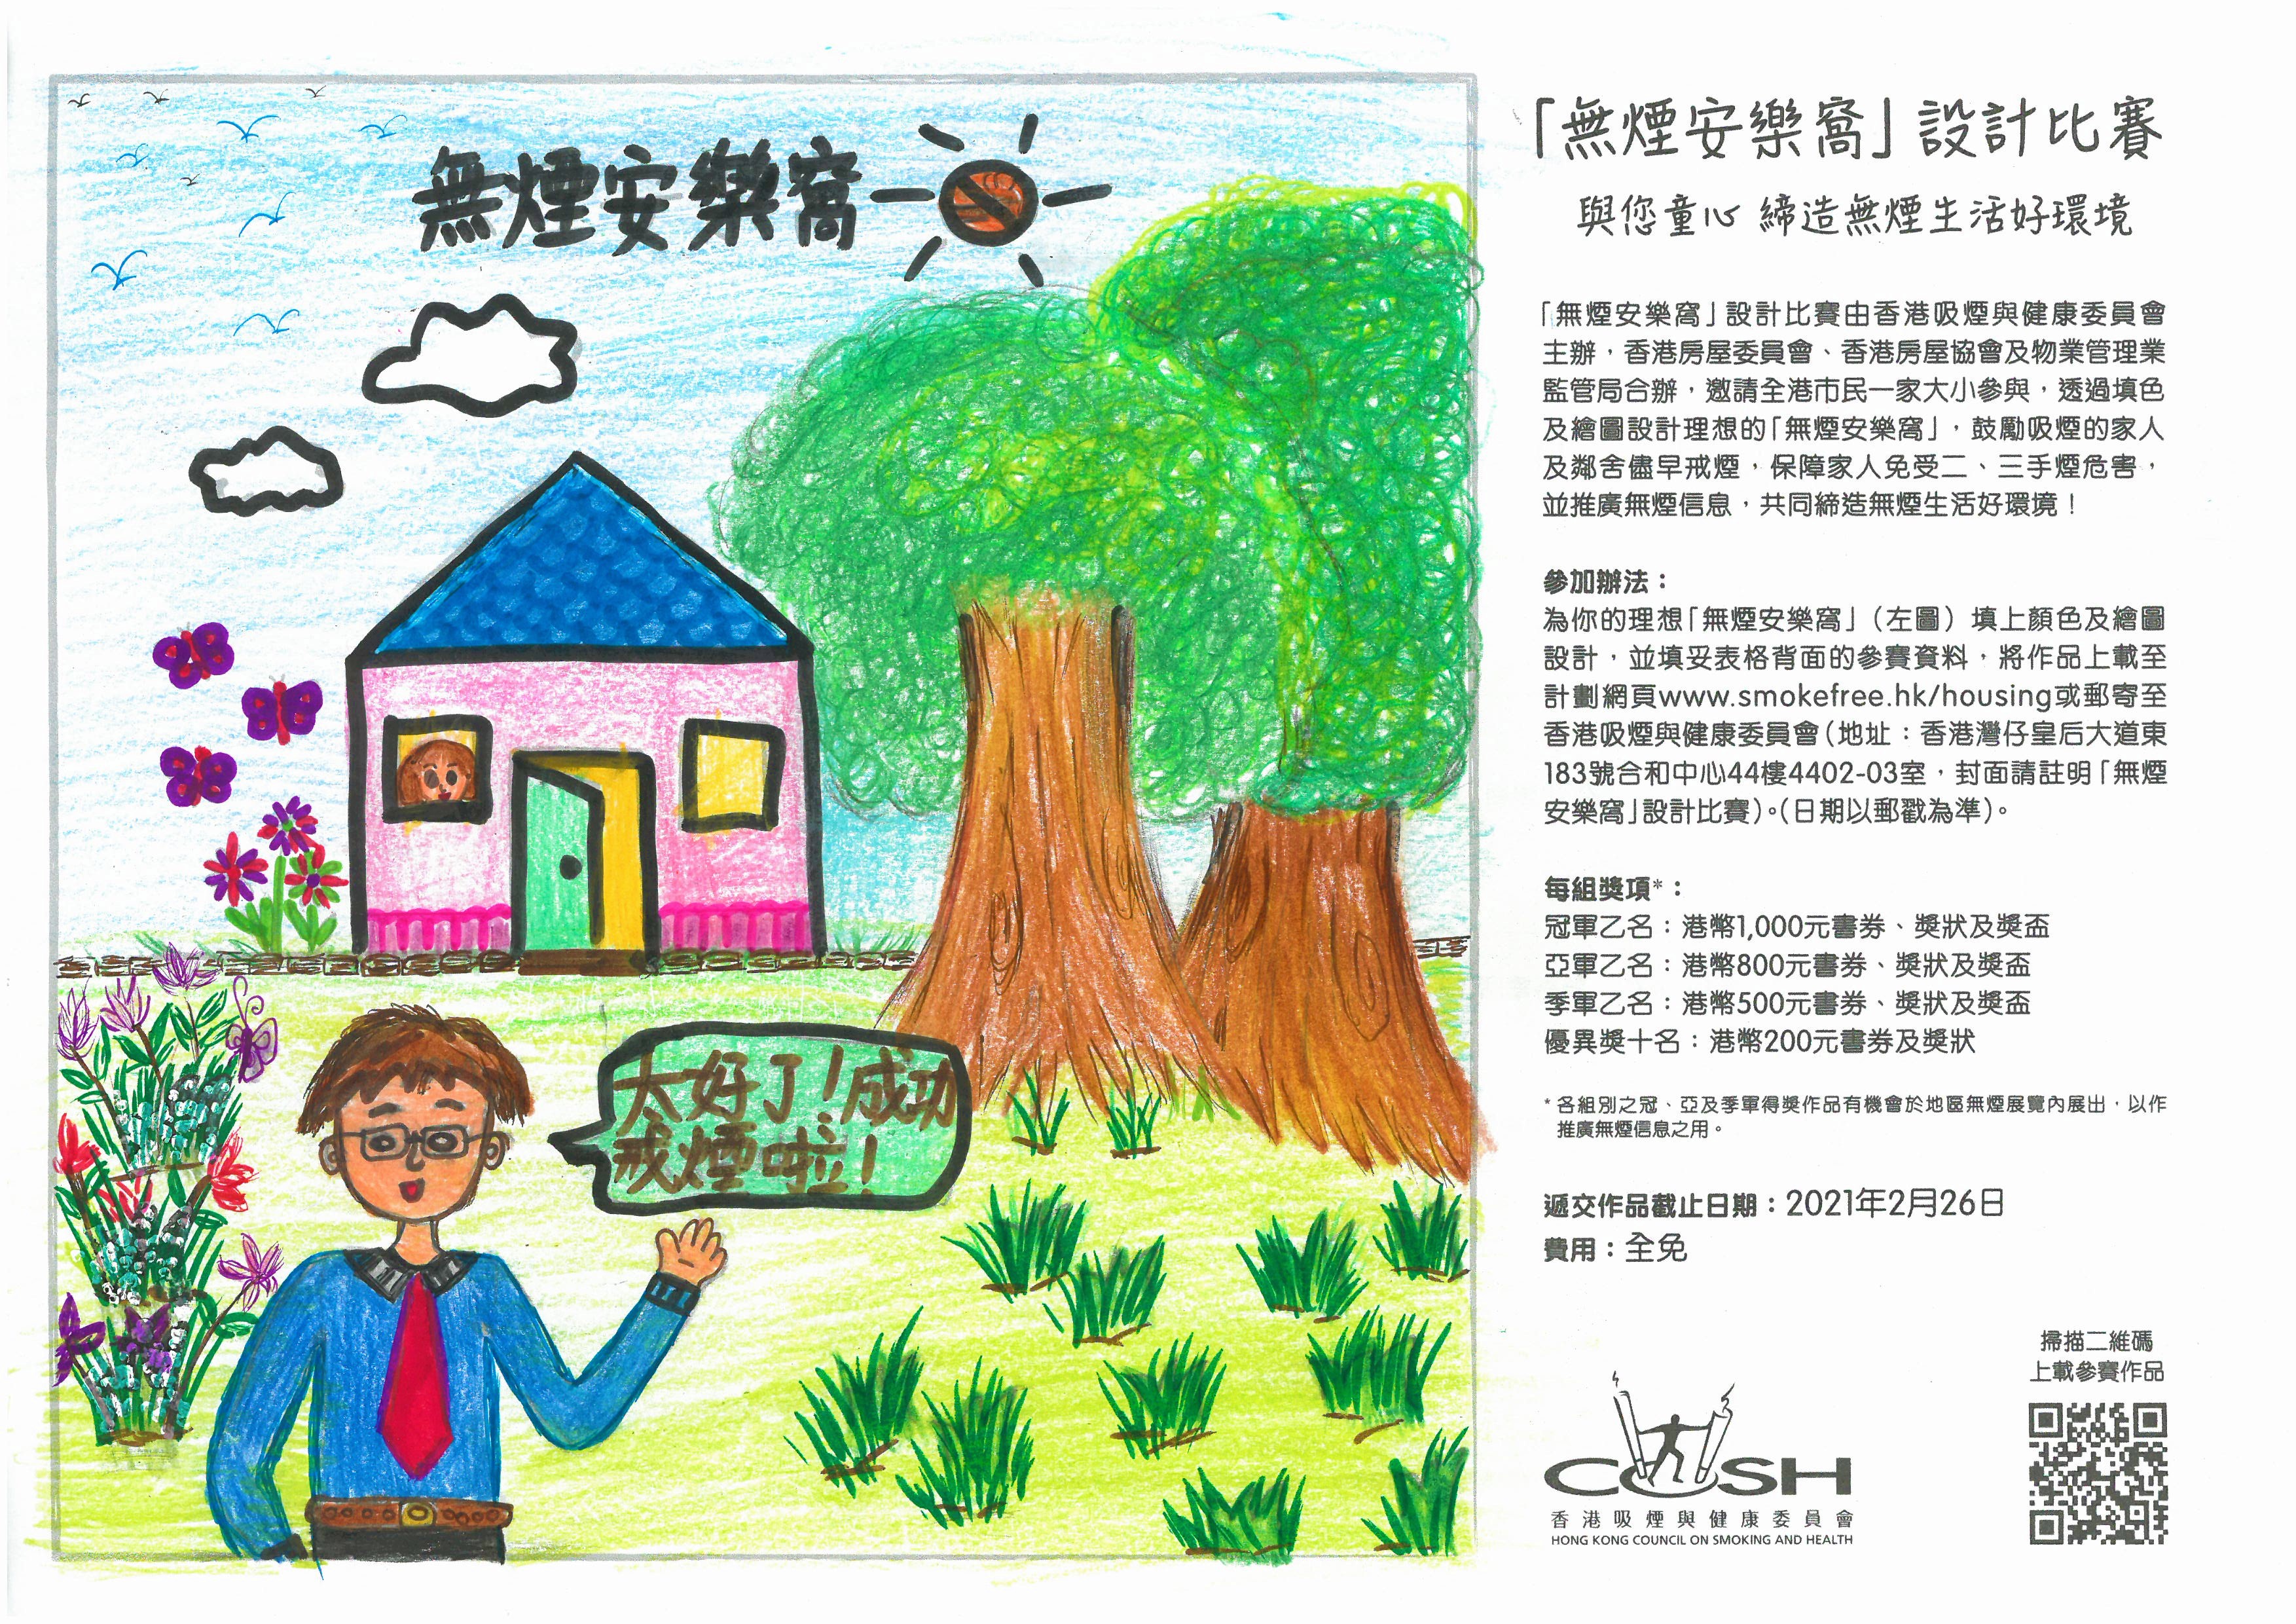 無煙安樂窩
太好了!成功
戒煙啦!
「無煙安樂窩」設計比賽
與您童心 締造無煙生活好環境
「無煙安樂窩」設計比賽由香港吸煙與健康委員會
主辦，香港房屋委員會、香港房屋協會及物業管理業
監管局合辦，邀請全港市民一家大小參與，透過填色
及繪圖設計理想的「無煙安樂窩」，鼓勵吸煙的家人
及鄰舍儘早戒煙，保障家人免受二、三手煙危害，
並推廣無煙信息，共同締造無煙生活好環境！
參加辦法：
為你的理想「無煙安樂窩」（左圖）填上顏色及繪圖
設計，並填妥表格背面的參賽資料，將作品上載至
計劃網頁www.smokefree.hk/housing或郵寄至
香港吸煙與健康委員會（地址：香港灣仔皇后大道東
183號合和中心44樓4402-03室，封面請註明「無煙
安樂窩」設計比賽）。（日期以郵戳為準）。
每組獎項*：
冠軍乙名：港幣1,000元書券、獎狀及獎盃
亞軍乙名：港幣800元書券、獎狀及獎盃
季軍乙名：港幣500元書券、獎狀及獎盃
優異獎十名：港幣200元書券及獎狀
* 各組別之冠、亞及季軍得獎作品有機會於地區無煙展覽內展出，以作
推廣無煙信息之用。
遞交作品截止日期：2021年2月26日
費用：全免
掃描二維碼
上載參賽作品
COSH
香港吸煙與健康委員會
HONG KONG COUNCIL ON SMOKING AND HEALTH